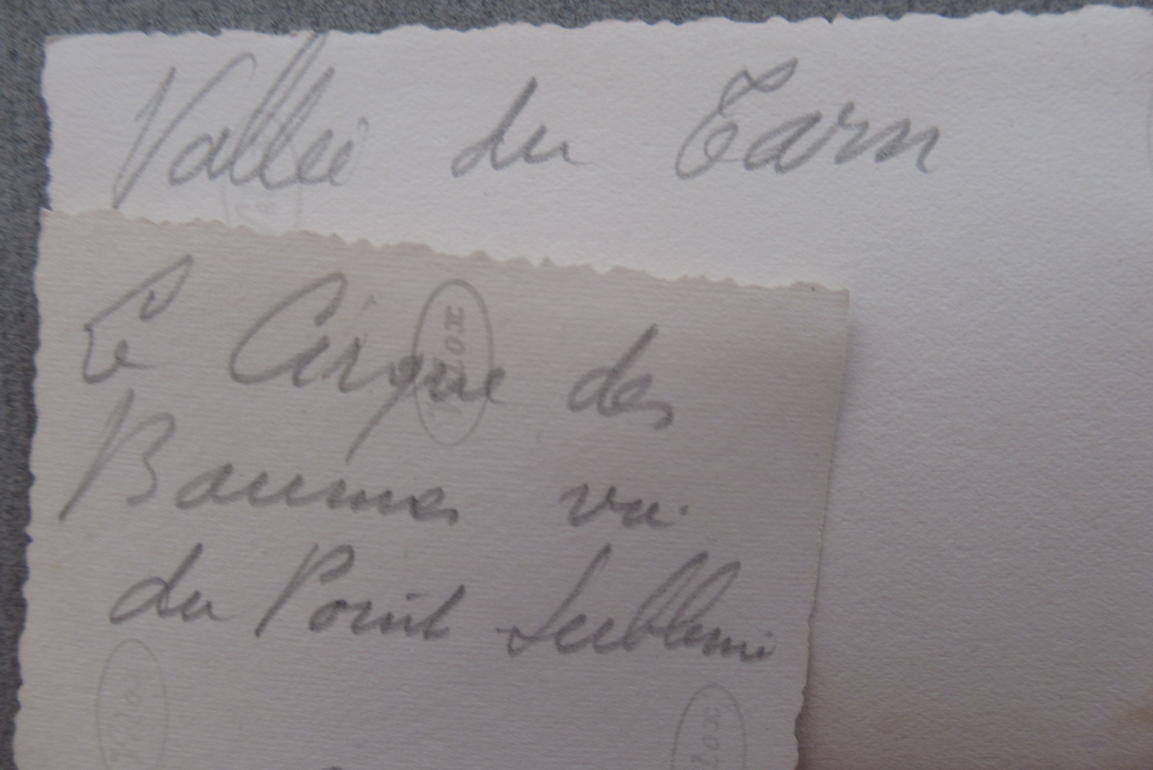 Vallée du Tarn
Le Cirque des
Baumes vu
du Point Sublime
VELOX